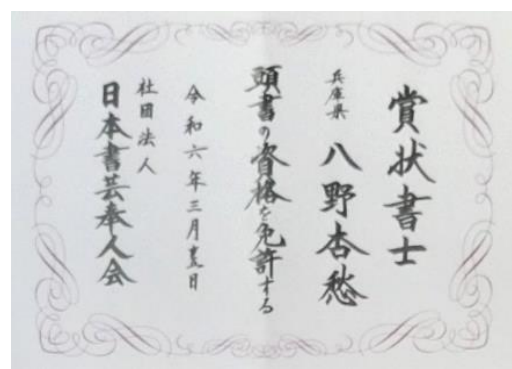 賞状書士
兵庫県 八野杏愁
頭書の資格を免許する
令和六年三月 日
社団法人
日本書芸奉人会